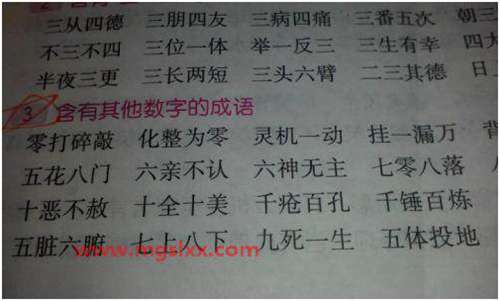 三从四德 三朋四友 三病四痛 三番五次 朝三
不三不四 三位一体 举一反三 三生有幸 四大
半夜三更 三长两短 三头六臂 二三其德 日
3 含有其他数字的成语
零打碎敲 化整为零 灵机一动 挂一漏万
五花八门 六亲不认 六神无主 七零八落
十恶不赦 十全十美 千疮百孔 千锤百炼
五脏六腑 七上八下 九死一生 五体投地
www.mgslxx.com